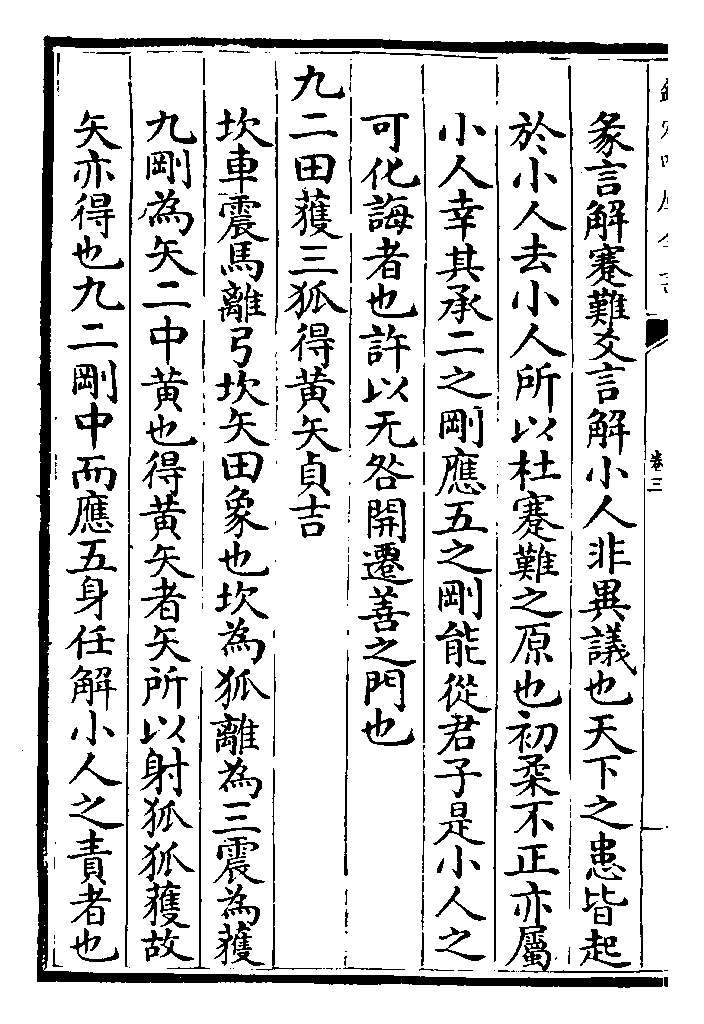 彖言解蹇難爻言解小人非異議也天下之患皆起
於小人去小人所以杜蹇難之原也初柔不正亦屬
小人幸其承二之剛應五之剛能從君子是小人之
可化誨者也許以无咎開遷善之門也
九二田獲三狐得黃矢貞吉
坎車震馬離弓坎矢田象也坎為狐離為三震為獲
九剛為矢二中黃也得黃矢者矢所以射狐狐獲故
矢亦得也九二剛中而應五身任解小人之責者也
卷三